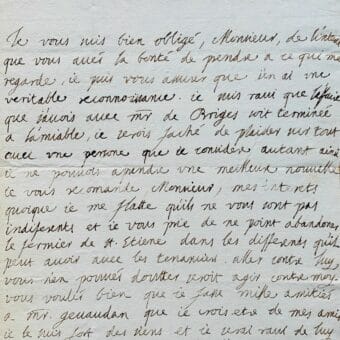 Je vous suis bien obligé, Monsieur, de l'inte
que vous avés la bonté de prendre a ce qui me
regarde, ie puis vous assurer que i'en ai vne
veritable reconnoissance. ie suis raui que l'afaire
que i'auois auec mr de Briges soit terminée
a l'amiable, ie serois faché de plaider sur tout
auec vne persone que ie considere autant ainsi
ie ne pouuois aprendre vne meilleur nouuelle
ie vous recomande, Monsieur, mes interets
quoique ie me flatte qu'ils ne vous sont pas
indiferents et ie vous prie de ne point abandoner
le fermier de st. Etiene dans les differents qu'il
peut auoir auec les tenanciers. aller contre luy
vous n'en pouués doutter seroit agir contre moy.
vous voulés bien que ie fasse mille amitiés
a mr. geuaudan que ie crois etre de mes amis
ie le suis fort des siens et ie serai raui de luy